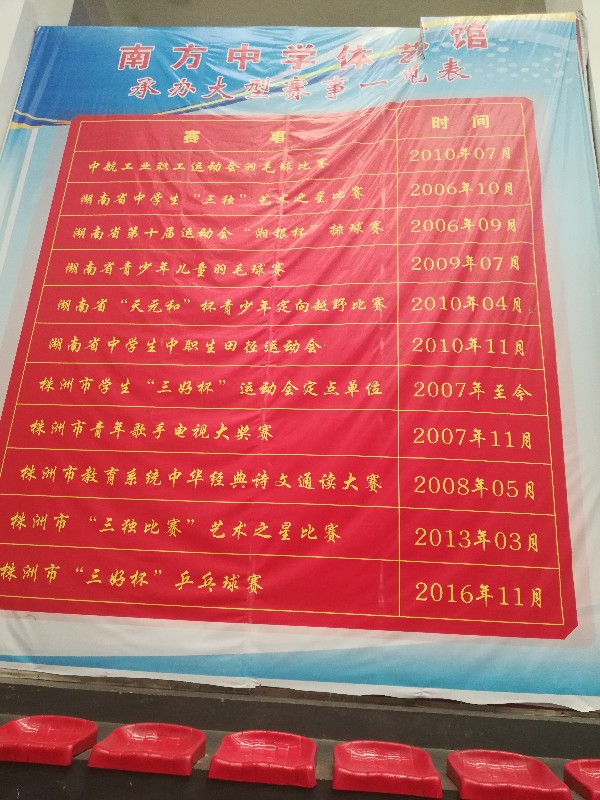 南方中学体艺馆
承办大型赛事一览表
赛事 时间
中航工业职工运动会羽毛球比赛 2010年07月
湖南省中学生“三独”艺术之星比赛 2006年10月
湖南省第十届运动会“湘银杯”排球赛 2006年09月
湖南省青少年儿童羽毛球赛 2009年07月
湖南省“天元和”杯青少年定向越野比赛 2010年04月
湖南省中学生中职生田径运动会 2010年11月
株洲市学生“三好杯”运动会定点单位 2007年至今
株洲市青年歌手电视大奖赛 2007年11月
株洲市教育系统中华经典诗文通读大赛 2008年05月
株洲市“三独比赛”艺术之星比赛 2013年03月
株洲市“三好杯”乒乓球赛 2016年11月